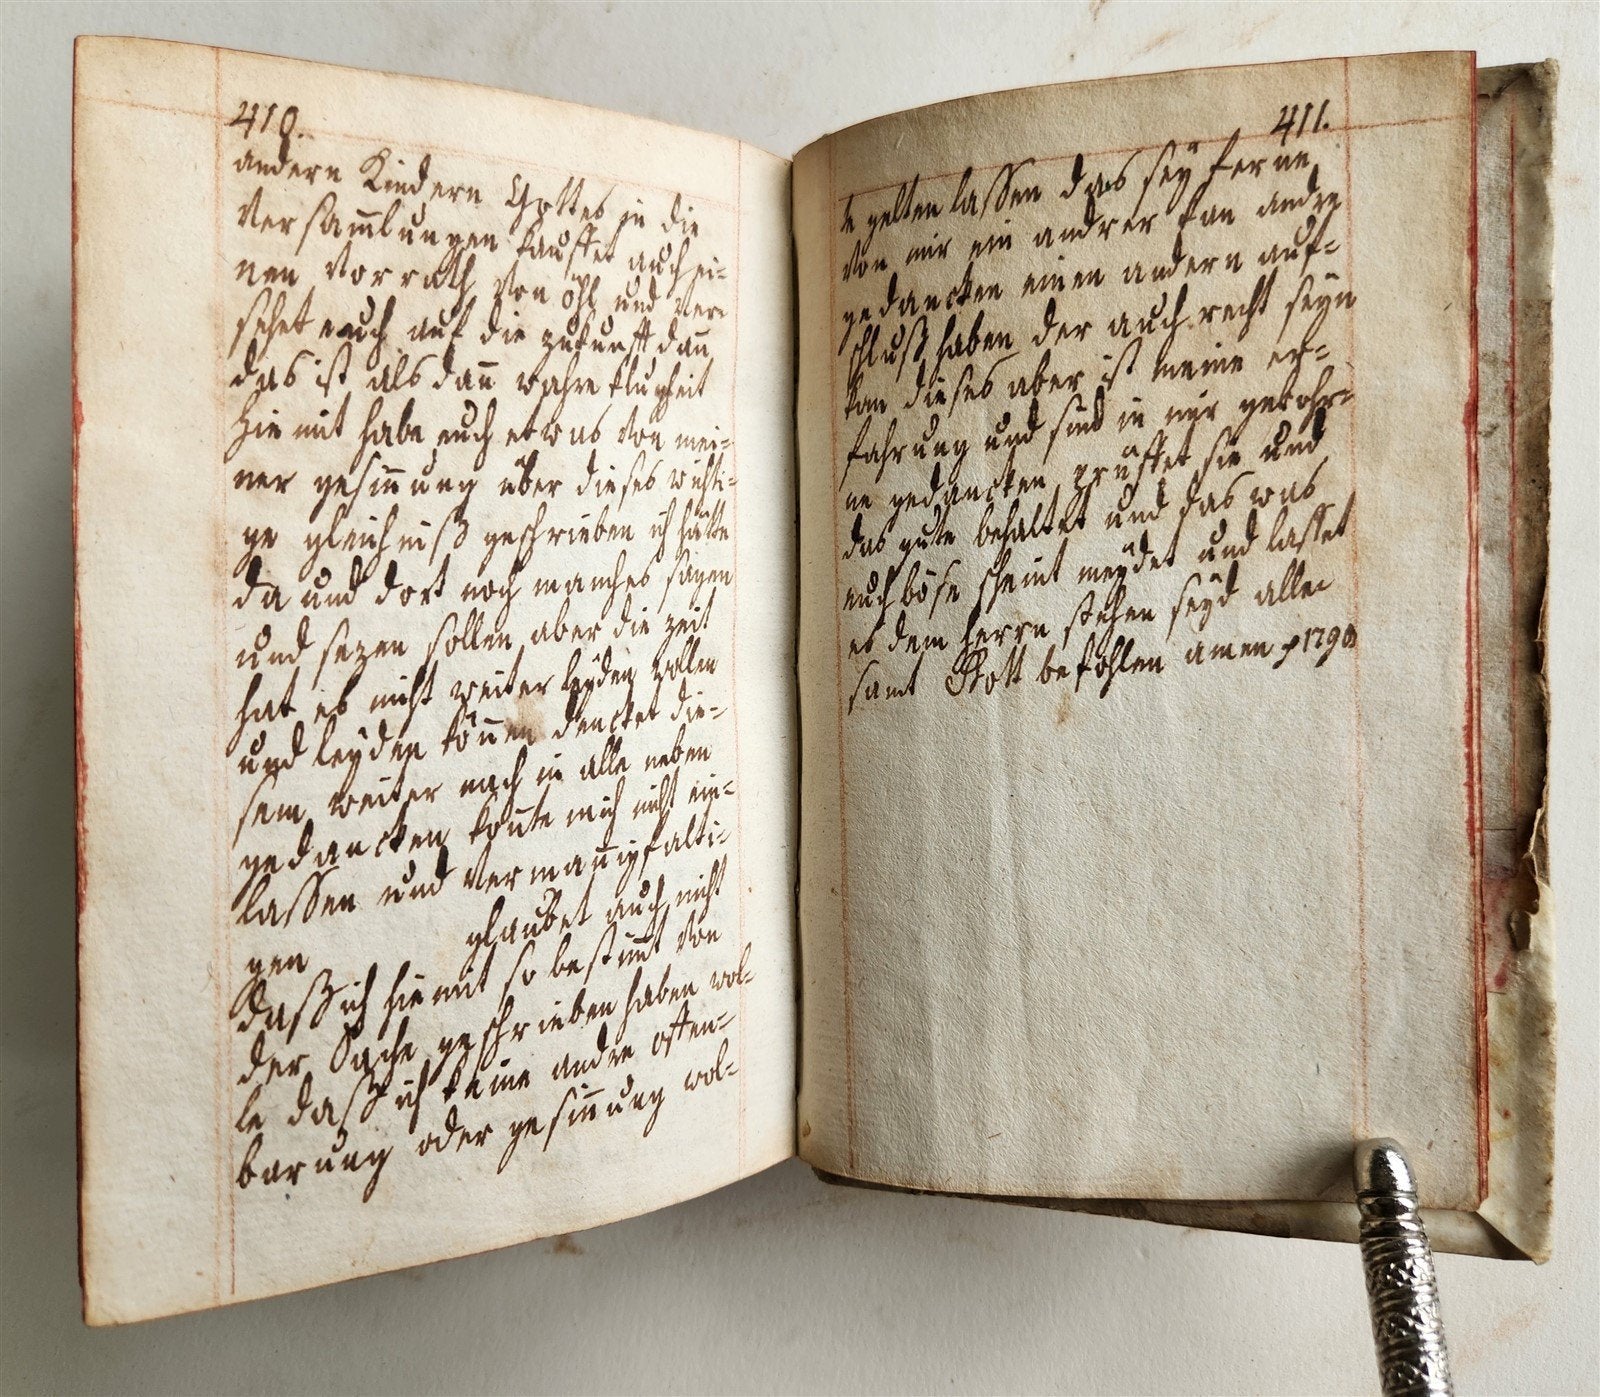 410.
andern Kindern Gottes in die
Versam̄lungen kauffet auch ei=
nen Vorrath Von öhl und Ver=
sehet euch auf die zukunfft dan̄
das ist als dan̄ wahre klugheit
Hie mit habe euch etwas Von mei=
ner gesin̄ung über dieses wichti=
ge gleichniß geschrieben ich hätte
da und dort noch manches sagen
und sezen sollen aber die zeit
hat es nicht weiter leyden wollen
und leyden kön̄en dencket die=
sem weiter nach in alle neben
gedancken kon̄te mich nicht ein=
lassen und Verman̄igfalti=
gen glaubet auch nicht
daß ich hie mit so bestim̄t Von
der Sache geschrieben haben wol=
le daß ich keine andre offen=
barung oder gesin̄ung wol=
411.
le gelten lassen das sey ferne
Von mir ein andrer kan andre
gedancken einen andern auf=
schluß haben der auch recht seyn
kan dieses aber ist meine er=
fahrung und sind in mir gebohr=
ne gedancken prüffet sie und
das gute behaltet und das was
euch böse scheint meydet und lasset
es dem Herrn stehen seyd alle
samt Gott befohlen amen